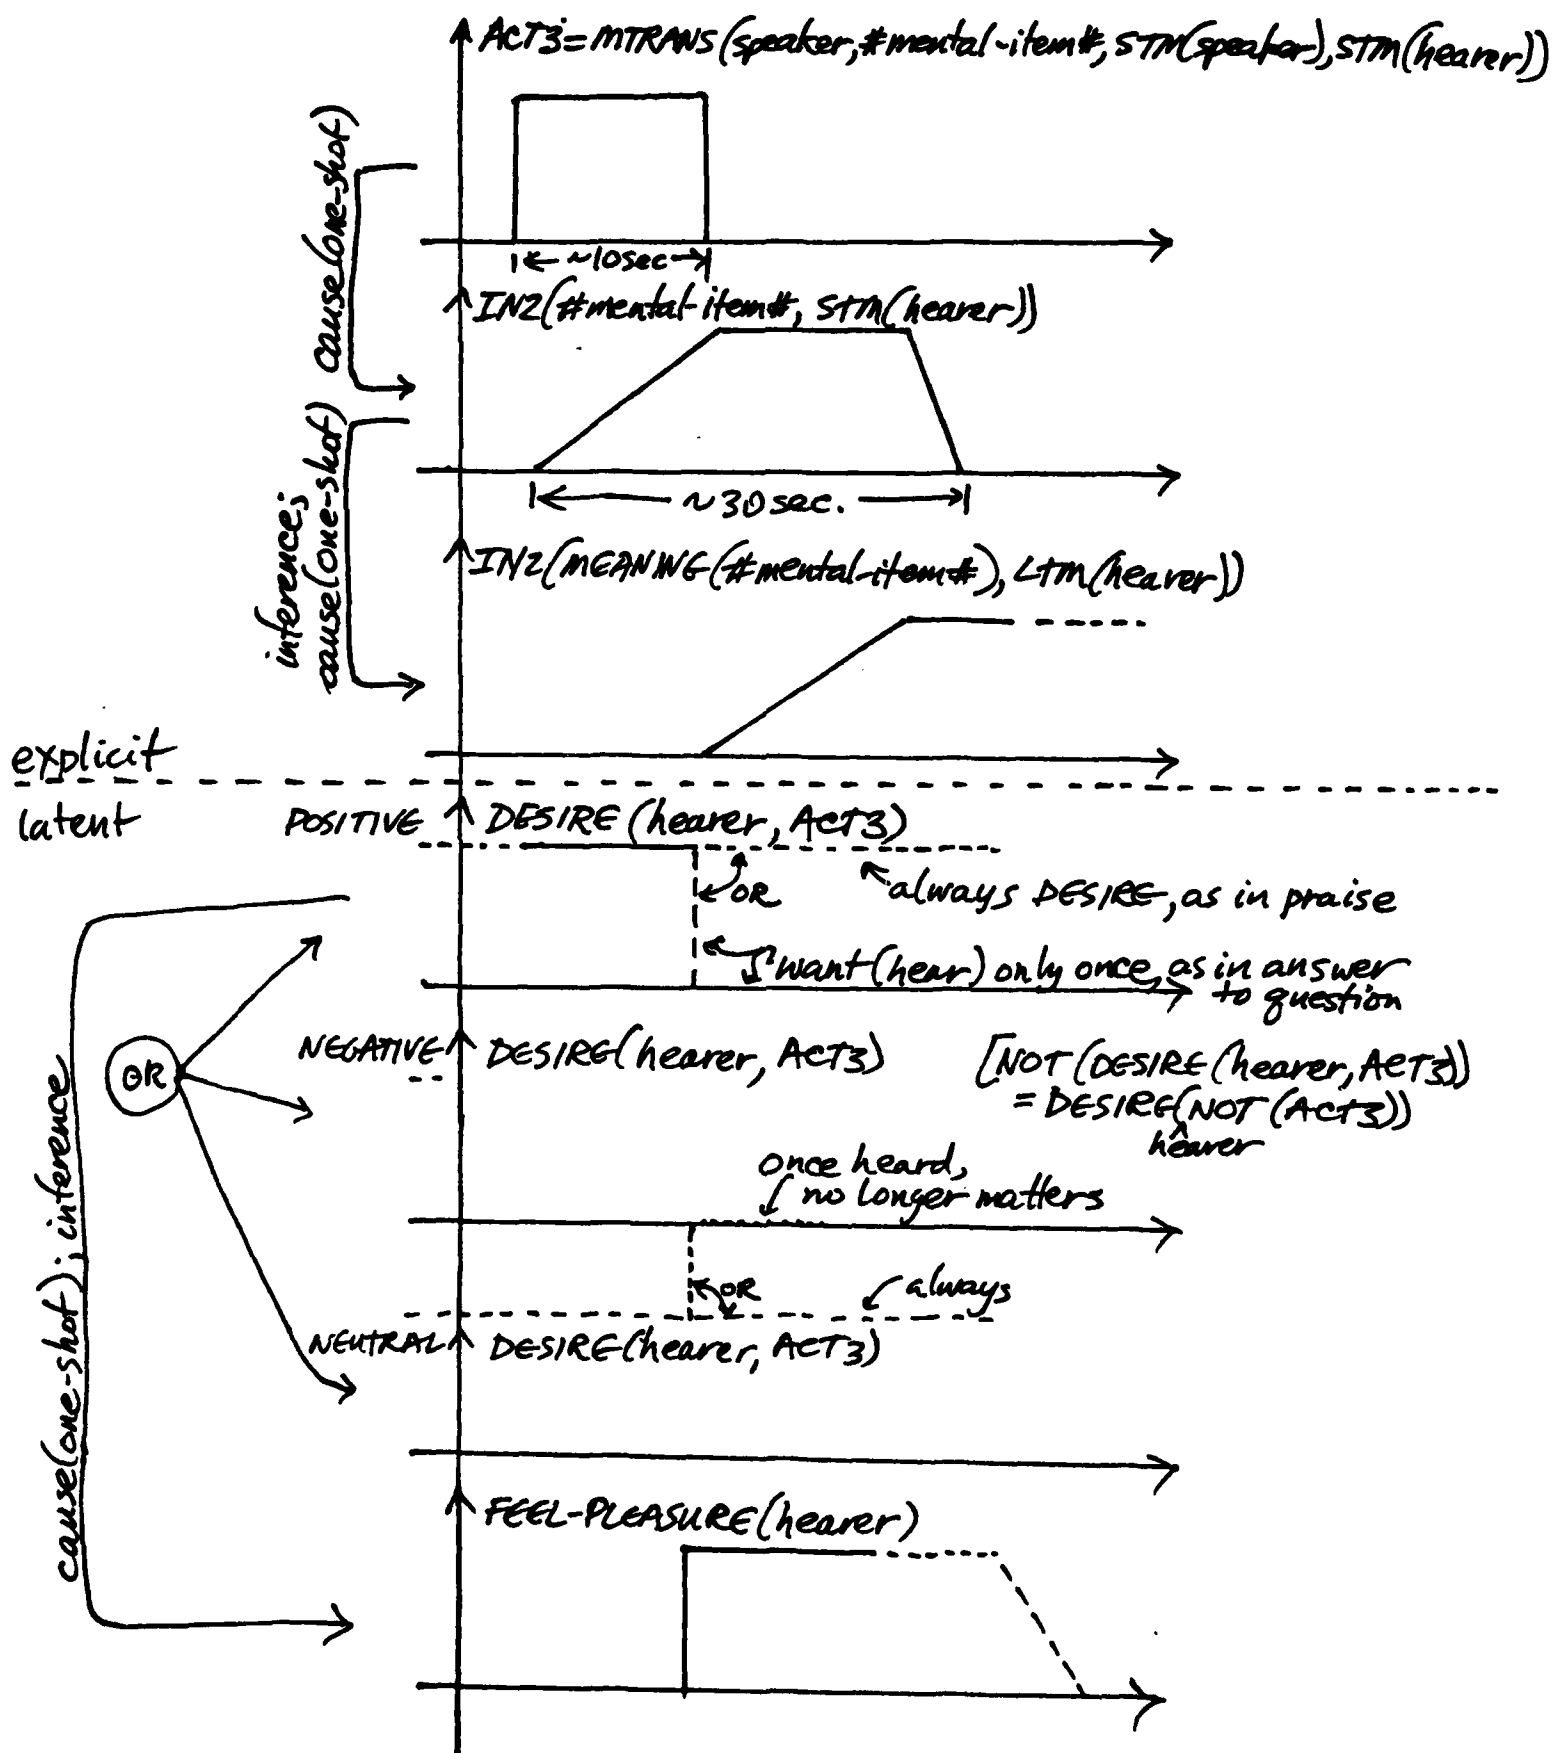 ACT3=MTRANS(speaker,#mental-item#,STM(speaker),STM(hearer))
cause(one-shot)
~10sec
IN2(#mental-item#, STM(hearer))
~30sec.
inference;
cause(one-shot)
IN2(MEANING(#mental-item#),LTM(hearer))
explicit
latent
POSITIVE
DESIRE(hearer, ACT3)
OR
always DESIRE, as in praise
want(hear) only once, as in answer
to question
NEGATIVE
DESIRE(hearer, ACT3)
[NOT(DESIRE(hearer,ACT3))
= DESIRE(NOT(ACT3))
^
hearer
OR
cause(one-shot); inference
once heard,
no longer matters
OR
always
NEUTRAL
DESIRE(hearer, ACT3)
FEEL-PLEASURE(hearer)